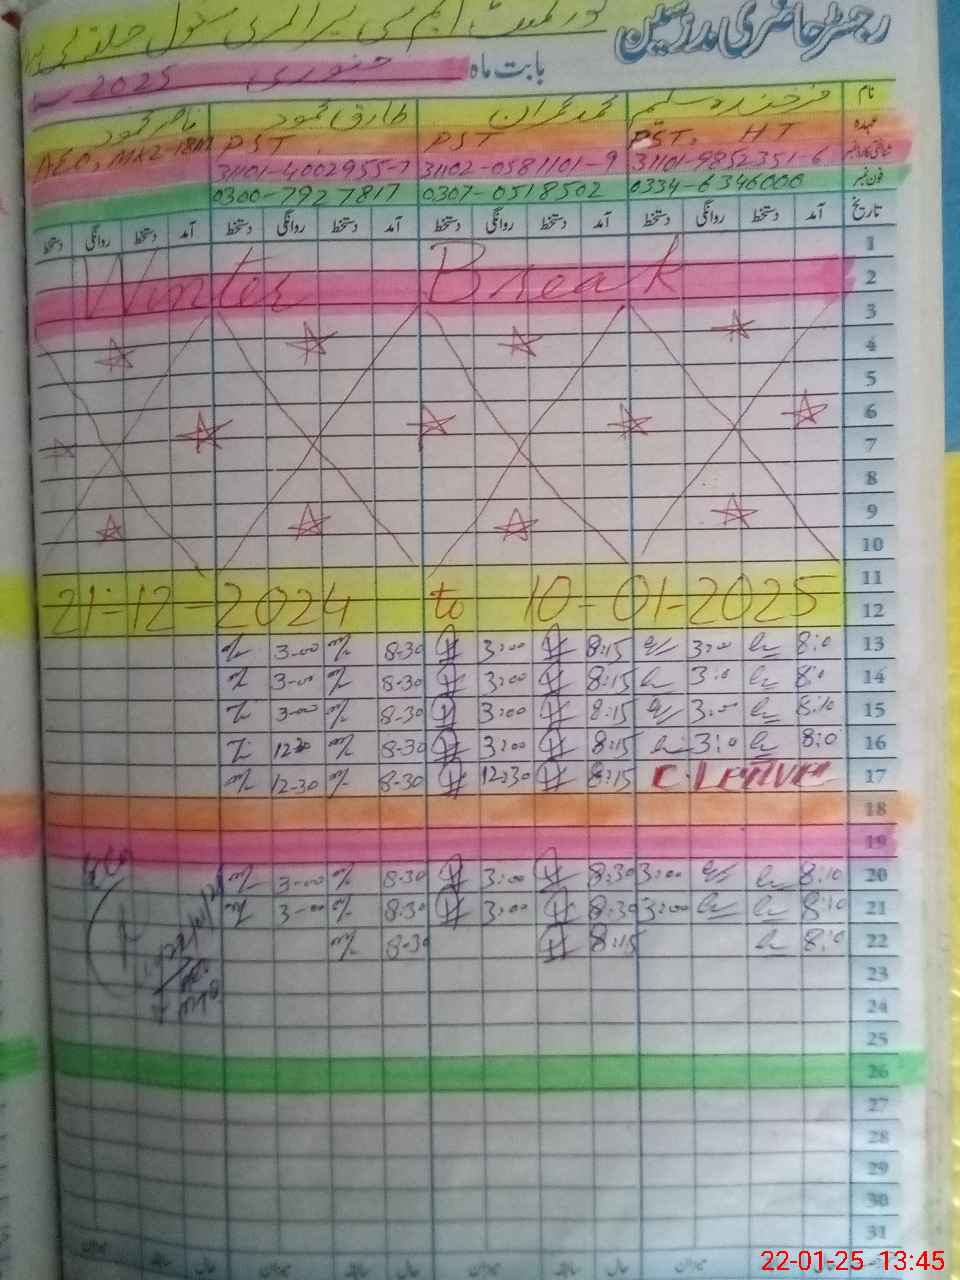 رجسٹر حاضری مدرسین
گورنمنٹ ایم سی پرائمری سکول
بابت ماہ جنوری 2025
نام فرخندہ سلیم محمد عمران طارق محمود ناصر محمود
عہدہ PST, HT PST PST AEO, MXZ-18M
شناختی کارڈ نمبر 31101-9852351-6 31102-0581101-9 31101-4002955-7
فون نمبر 0334-6346006 0307-0518502 0300-7927817
تاریخ آمد دستخط روانگی دستخط آمد دستخط روانگی دستخط آمد دستخط روانگی دستخط آمد دستخط روانگی دستخط
1
2 Winter Break
3
4
5
6
7
8
9
10
11
21-12-2024 to 10-01-2025
12
13 8:0 3:00 8:15 3:00 8-30 3-00
14 8:0 3:0 8:15 3:00 8-30 3-00
15 8:10 3:00 8:15 3:00 8-30 3-00
16 8:0 3:0 8:15 3:00 8-30 1230
17 C. Leave 8:15 12:30 8-30 12-30
18
19
20 8:10 3:00 8:30 3:00 8-30 3-00
21 8:10 3:00 8:30 3:00 8:30 3-00
22 8:0 8:15 8-30
23
24
25
26
27
28
29
30
31
میزان حال سابقہ میزان حال سابقہ میزان حال
22-01-25 13:45